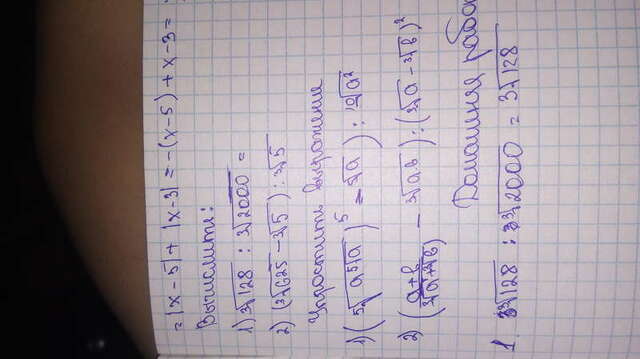 = |x - 5| + |x - 3| = -(x - 5) + x - 3 =
Вычислите:
1) ∛128 : ∛2000 =
2) (∛625 - ∛5) : ∛5
Упростите выражение
1) (⁵√(a⁵√a))⁵ - ⁵√a) : ¹⁰√a²
2) ((a+b)/(∛a+∛b) - ∛ab) : (∛a - ∛b)²
Домашняя рабо
1. 3∛128 : 3∛2000 = 3√128